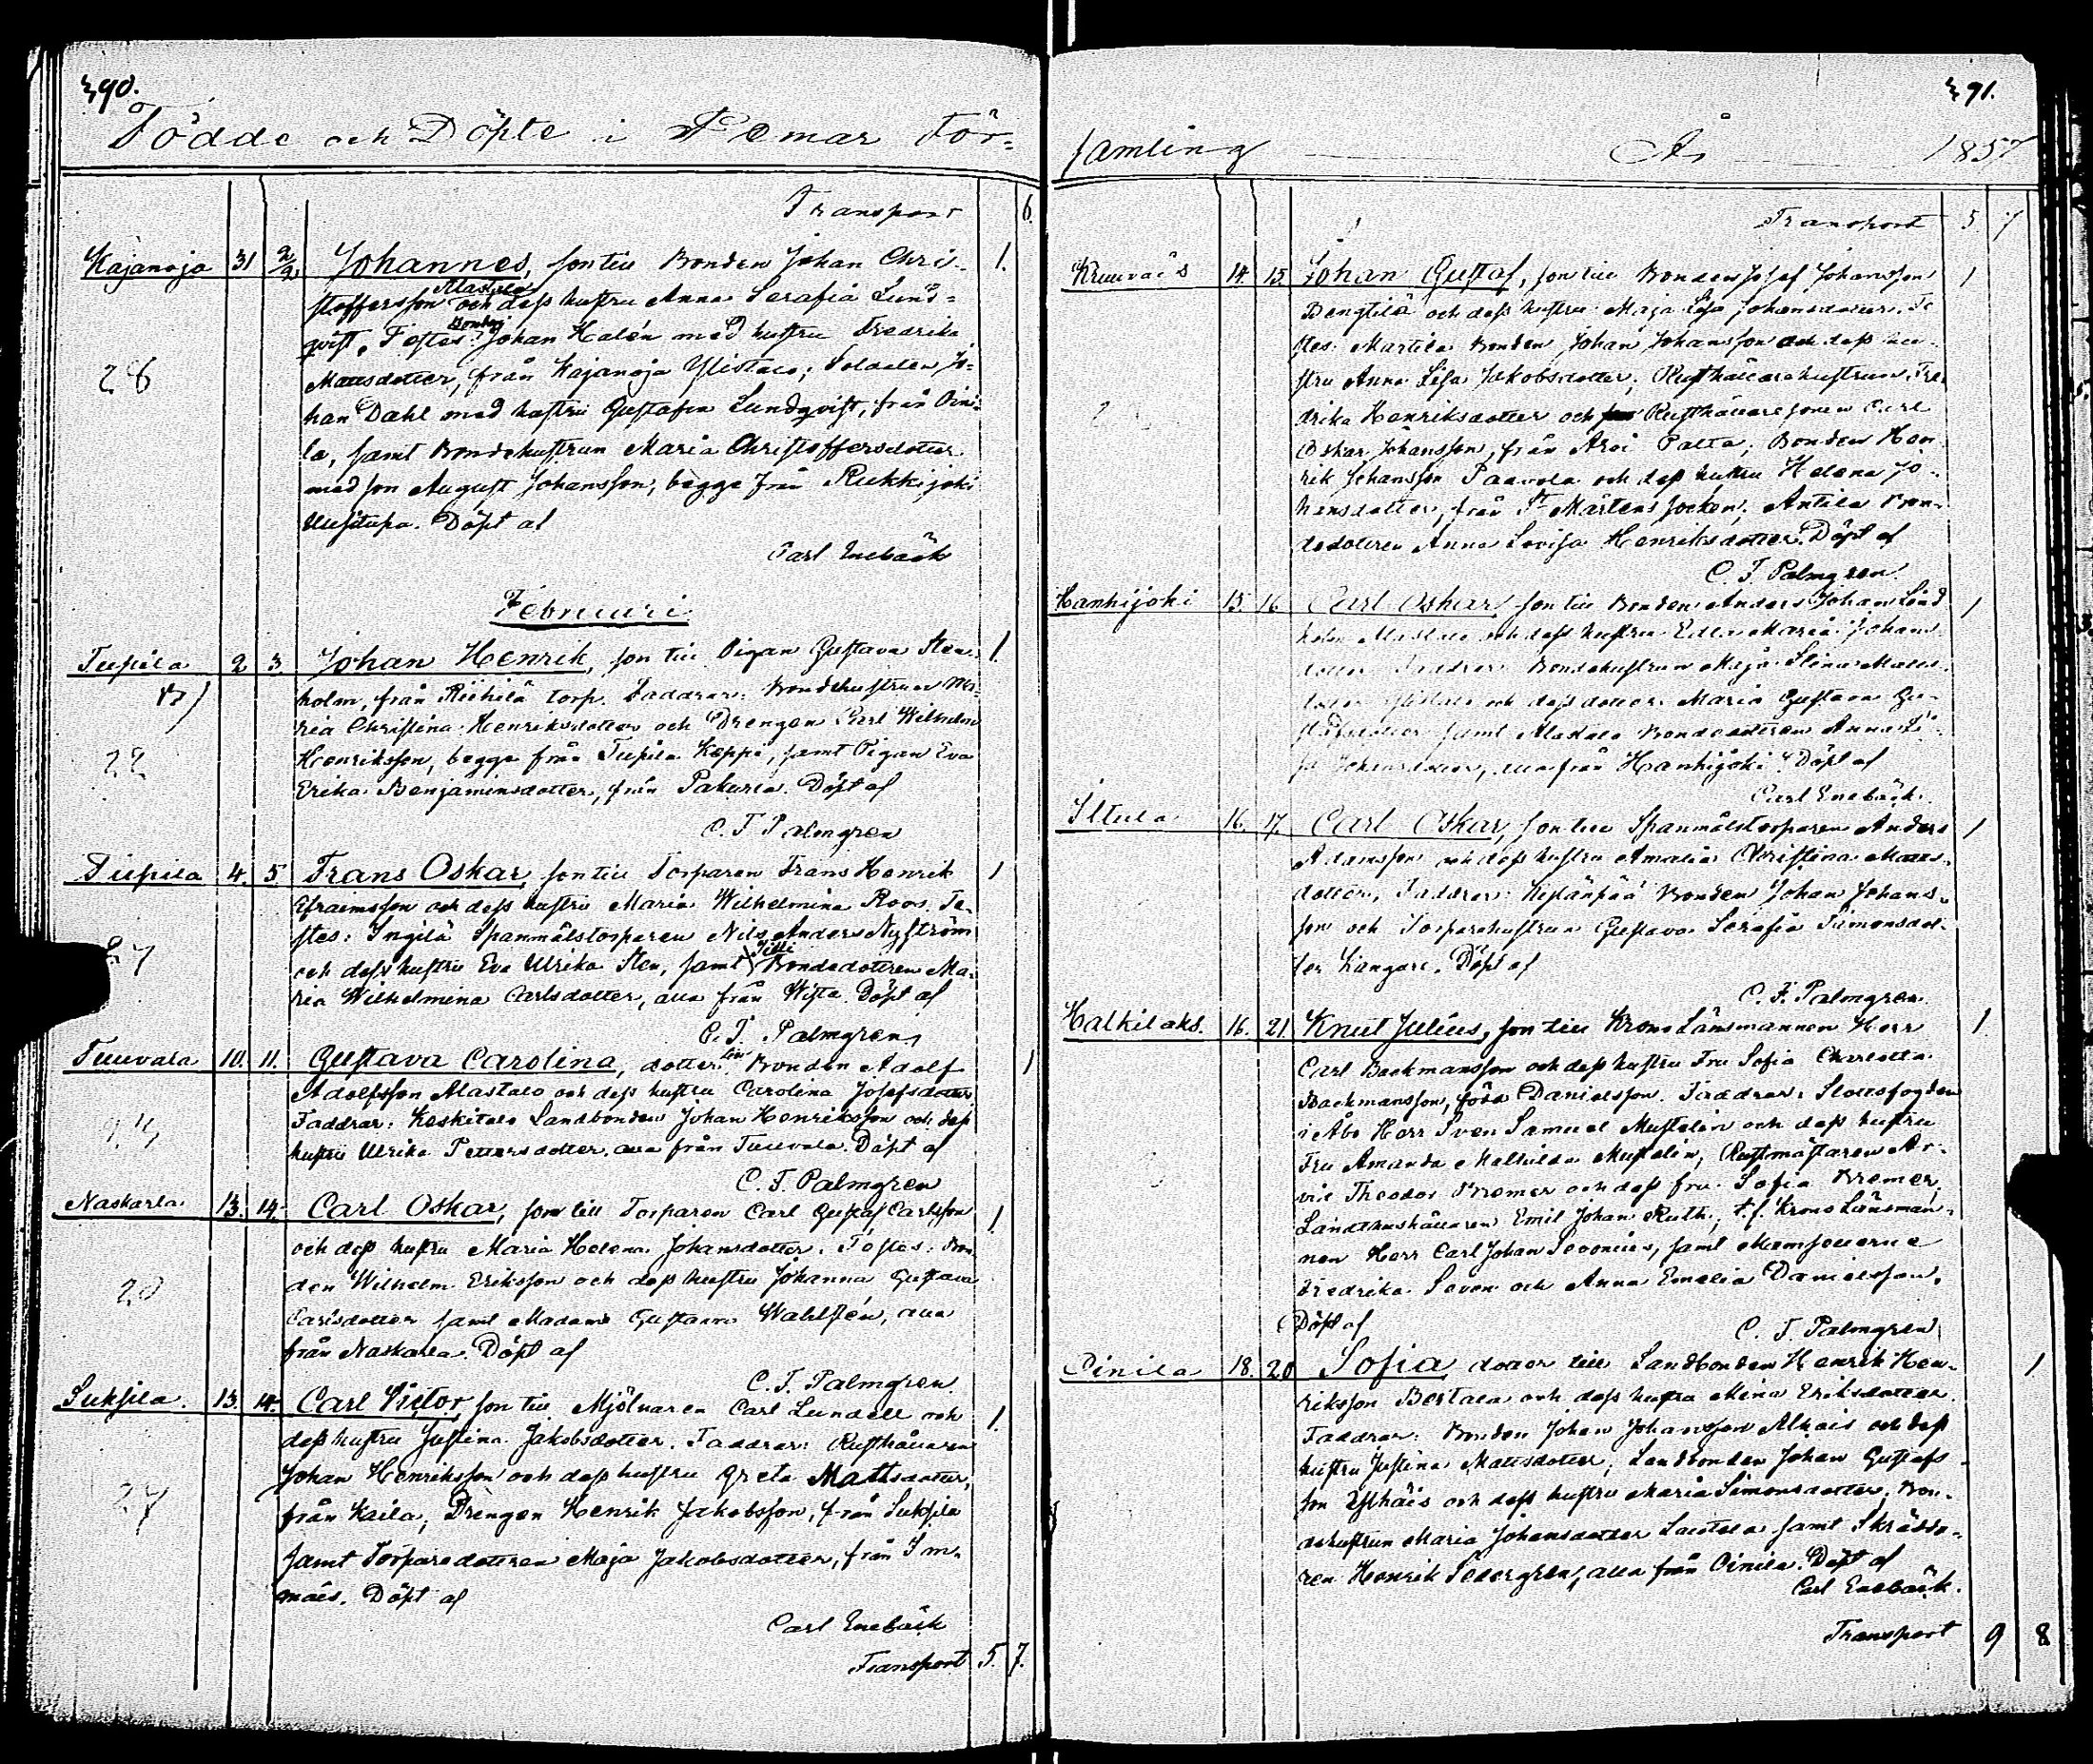 390.
Födde och Döpte i Pemar För=
Transport 6.
Kajanoja 31 2/2 Johannes, son till Bonden Johan Chris- 1.
Alastalo
stoffersson och dess hustru Anna Serafia Lund=
Bonden
qvist. Testes: Johan Halén med hustru Fredrika
28
Mattsdotter, från Kajanoja Ylistalo; Soldaten Jo-
han Dahl med hustru Gustafva Lundqvist, från Oini-
la, samt Bondehustrun Maria Christoffersdotter
med son August Johansson, begge från Rukkijoki
Uusitupa. Döpt af
Carl Enebäck
Februari
Tupila 2 3. Johan Henrik, son till Pigan Gustava Sten- 1.
holm, från Riihilä torp. Faddrar: Bondehustrun Ma-
ria Christina Henriksdotter och Drengen Carl Wilhelm
22
Henriksson, begge från Tupila Keppi, samt Pigan Eva
Erika Benjaminsdotter, från Pakurla. Döpt af
C. F. Palmgren
Tiipila 4. 5. Frans Oskar, son till Torparen Frans Henrik 1
Efraimsson och dess hustru Maria Wilhelmina Roos. Te-
stes: Ingilä Spanmålstorparen Nils Anders Nyström
27
Tilli
och dess hustru Eva Ulrika Sten, samt Bondedottren Ma-
ria Wilhelmina Carlsdotter, alla från Wista. Döpt af
C. F. Palmgren
Tuuvala 10. 11. Gustava Carolina, dotter till Bonden Adolf 1
Adolfsson Alastalo och dess hustru Carolina Josefsdotter
Faddrar: Keskitalo Landbonden Johan Henriksson och dess
hustru Ulrika Pettersdotter, alla från Tuuvala. Döpt af
C. F. Palmgren
Naskarla 13. 14. Carl Oskar, son till Torparen Carl Gustaf Carlsson 1
och dess hustru Maria Helena Johansdotter. Testes: Bon-
den Wilhelm Eriksson och dess hustru Johanna Gustava
Carlsdotter samt Madame Gustava Wahlstén, alla
från Naskarla. Döpt af
C. F. Palmgren
Suksila. 13. 14. Carl Victor, son till Mjölnaren Carl Lundell och 1.
dess hustru Justina Jakobsdotter. Faddrar: Rusthållaren
Johan Henriksson och dess hustru Greta Mattsdotter,
27
från Kaila; Drengen Henrik Jakobsson, från Suksila
samt Torparedottren Maja Jakobsdotter, från Im-
mäis. Döpt af
Carl Enebäck
Transport 5. 7.
391.
samling År 1857
Transport 5. 7
Kruuvais 14. 15. Johan Gustaf, son till Bonden Josef Johansson 1
Bengtilä och dess hustru Maja Lisa Johansdotter. Te-
stes: Martila Bonden Johan Johansson och dess hu-
stru Anna Lisa Jakobsdotter; Rusthållarehustrun Fre-
drika Henriksdotter och Rusthållaresonen Carl
Oskar Johansson, från Aroi Palta; Bonden Hen-
rik Johansson Paavola och dess hustru Helena Jo-
hansdotter, från St Mårtens socken; Antila Bon-
dedottren Anna Lovisa Henriksdotter. Döpt af
C. F. Palmgren.
Hanhijoki 15. 16. Carl Oskar, son till Bonden Anders Johan Lind- 1
holm Alastalo och dess hustru Edla Maria Johans-
dotter. Faddrar: Bondehustrun Maja Stina Matts-
dotter Ylistalo och dess dotter Maria Gustava Gu-
stafsdotter samt Alastalo Bondedottren Anna Li-
sa Johansdotter, alla från Hanhijoki. Döpt af
Carl Enebäck.
Iltula 16. 17. Carl Oskar, son till Spanmålstorparen Anders 1
Adamsson och dess hustru Amalia Christina Matts-
dotter. Faddrar: Kepänpää Bonden Johan Johans-
son och Torparehustrun Gustava Serafia Simonsdot-
ter Kangare. Döpt af
C. F. Palmgren
Halkilaks. 16. 21. Knut Julius, son till Krono Länsmannen Herr 1.
Carl Backmansson och dess hustru Fru Sofia Charlotta
Backmansson, född Danielsson. Faddrar: Slottsfogden
i Åbo Herr Sven Samuel Mustelin och dess hustru
Fru Amanda Mathilda Mustelin; Rustmästaren Ar-
vid Theodor Bremer och dess fru Sofia Bremer,
Landthushållaren Emil Johan Ruth; t.f. Krono Länsman-
nen Herr Carl Johan Sevonius, samt Mamsellerne
Fredrika Seven och Anna Emelia Danielsson.
Döpt af
C. F. Palmgren
Oinila 18. 20 Sofia dotter till Landbonden Henrik Hen- 1
riksson Bertala och dess hustru Mina Eriksdotter
Faddrar: Bonden Johan Johansson Alhais och dess
hustru Justina Mattsdotter; Landbonden Johan Gustafs-
son Ylhäis och dess hustru Maria Simonsdotter; Bon-
dehustrun Maria Johansdotter Sautala samt Skrädda-
ren Henrik Södergren, alla från Oinila. Döpt af
Carl Enebäck.
Transport 9 8